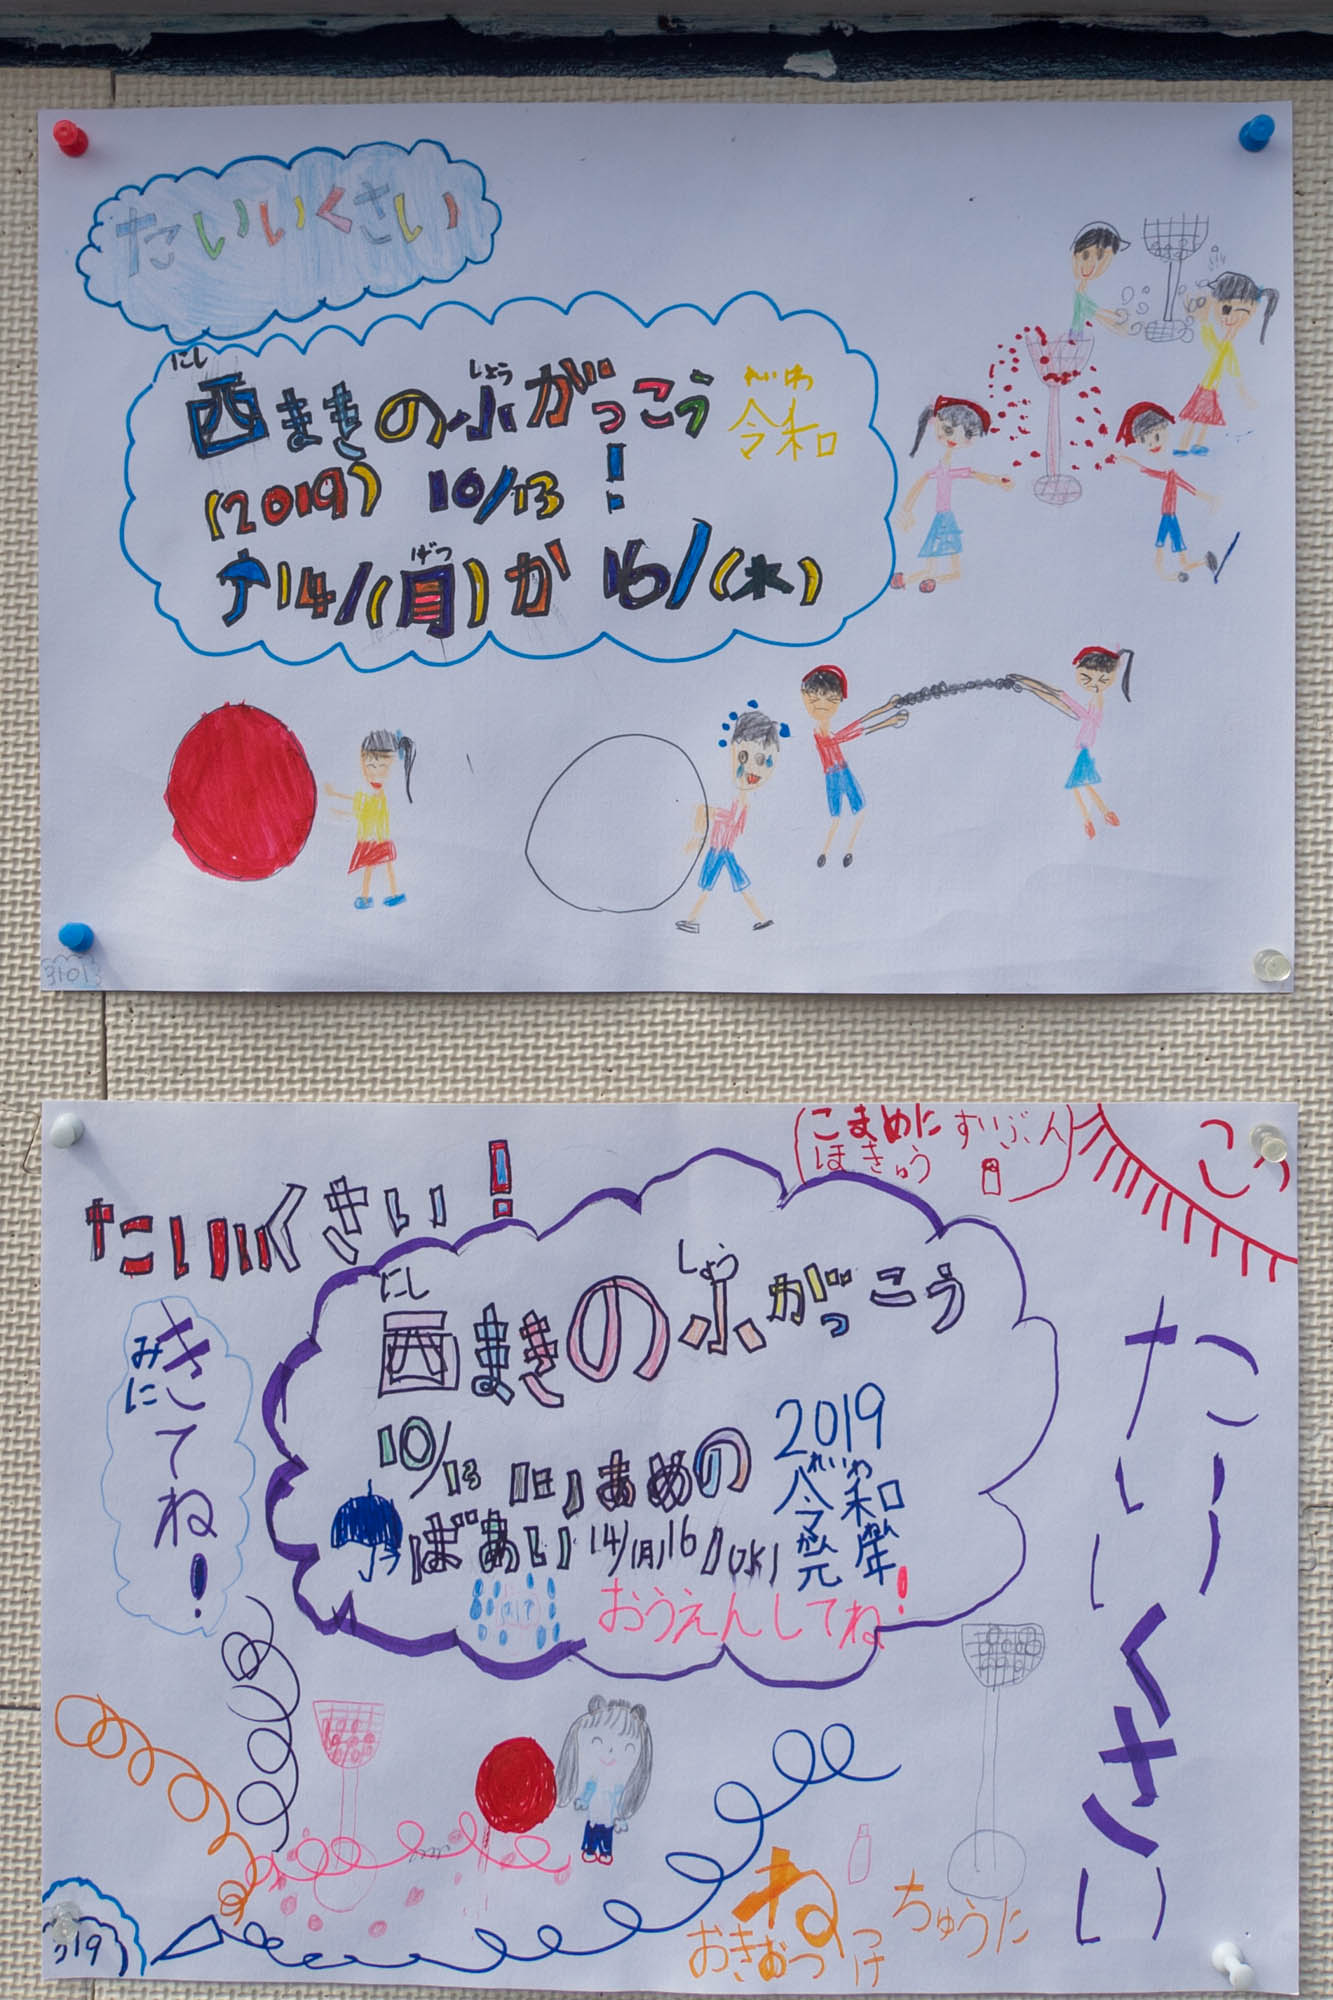 たいいくさい
にし
西まきの小がっこう
しょう
れいわ
令和
(2019) 10/13 !
14/(月)か16/(水)
げつ
31013
こまめにすいぶん
ほきゅう
たいいくさい!
にし
西まきの小がっこう
しょう
みに
きてね!
10/13(日)あめの
ばあい14/(月)16/(水)
2019
れいわ
令和
がんねん
元年
おうえんしてね!
たいいくさい
たいいくさい
ねっ
ちゅうに
おきをつけ
319